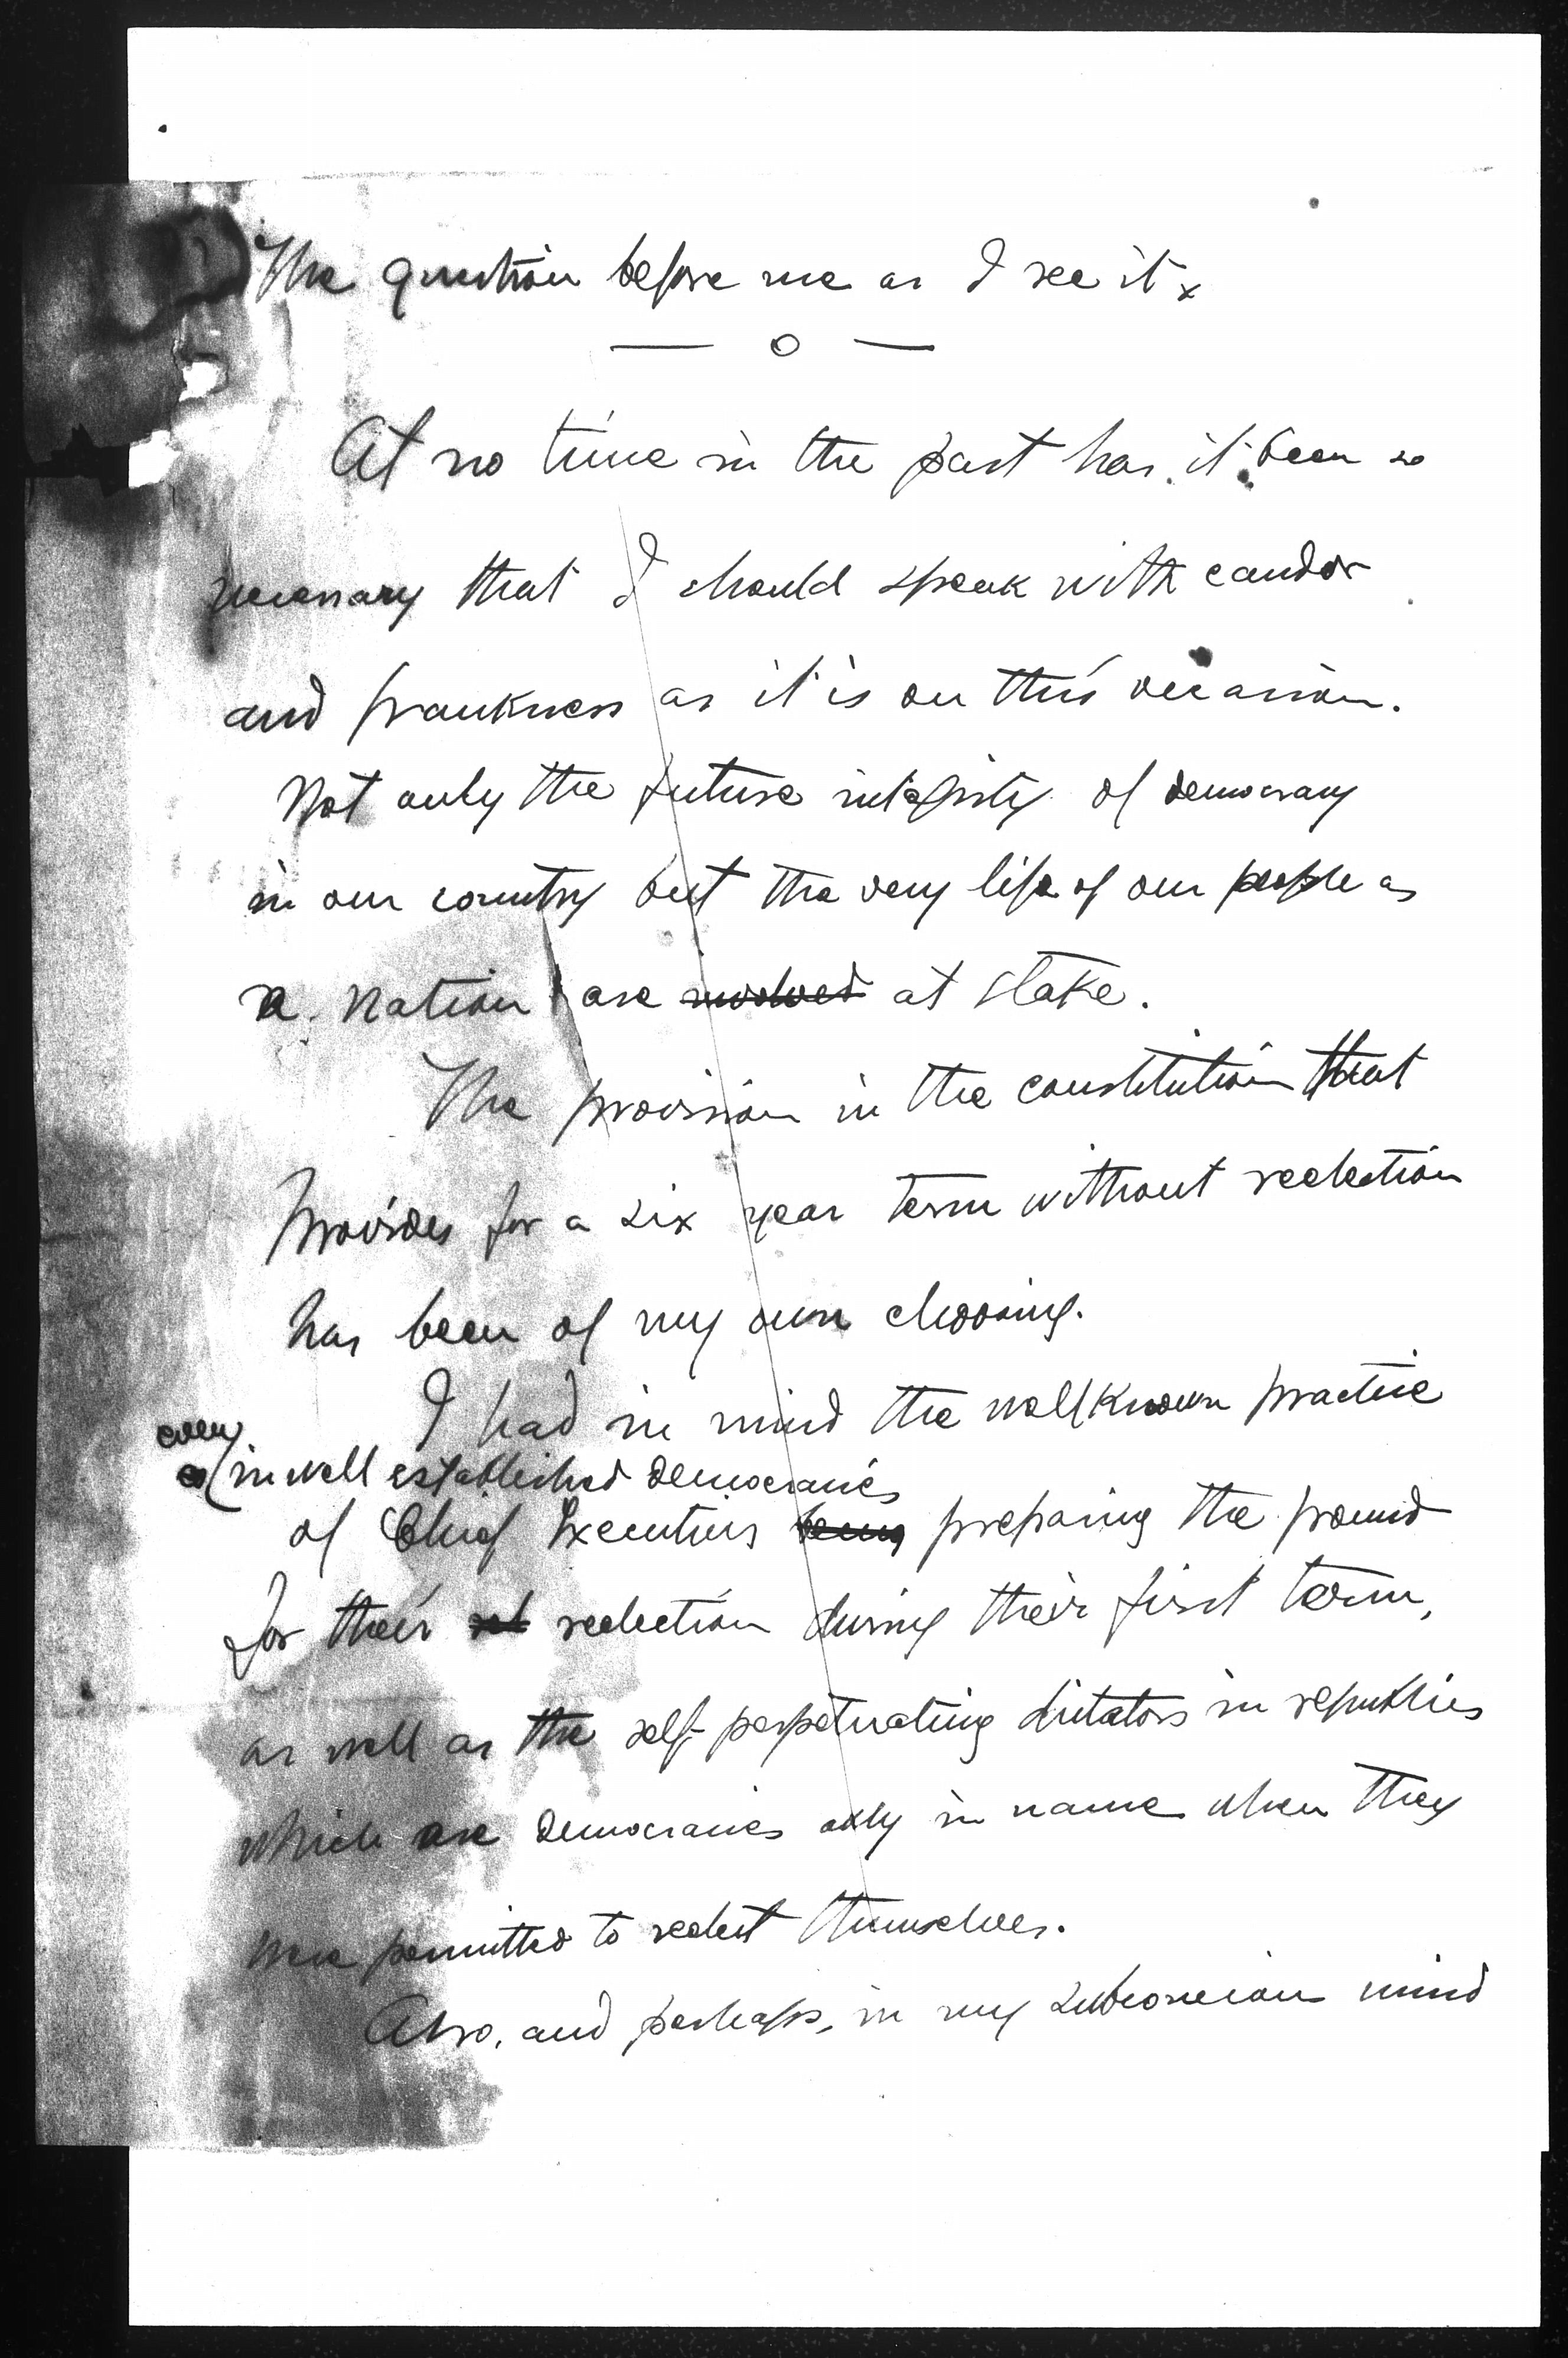 The question before me as I see it x
— o —
At no time in the past has it been so
necessary that I should speak with candor
and frankness as it is on this occasion.
Not only the future integrity of democracy
in our country but the very life of our people as
a nation are involved at stake.
The provision in the constitution that
provides for a six year term without reelection
has been of my own choosing.
I had in mind the wellknown practice
even
(in well established democracies
of Chief Executives being preparing the ground
for their reelection during their first term,
as well as the self-perpetuating dictators in republics
which are democracies only in name when they
were permitted to reelect themselves.
Also, and perhaps, in my subconscious mind